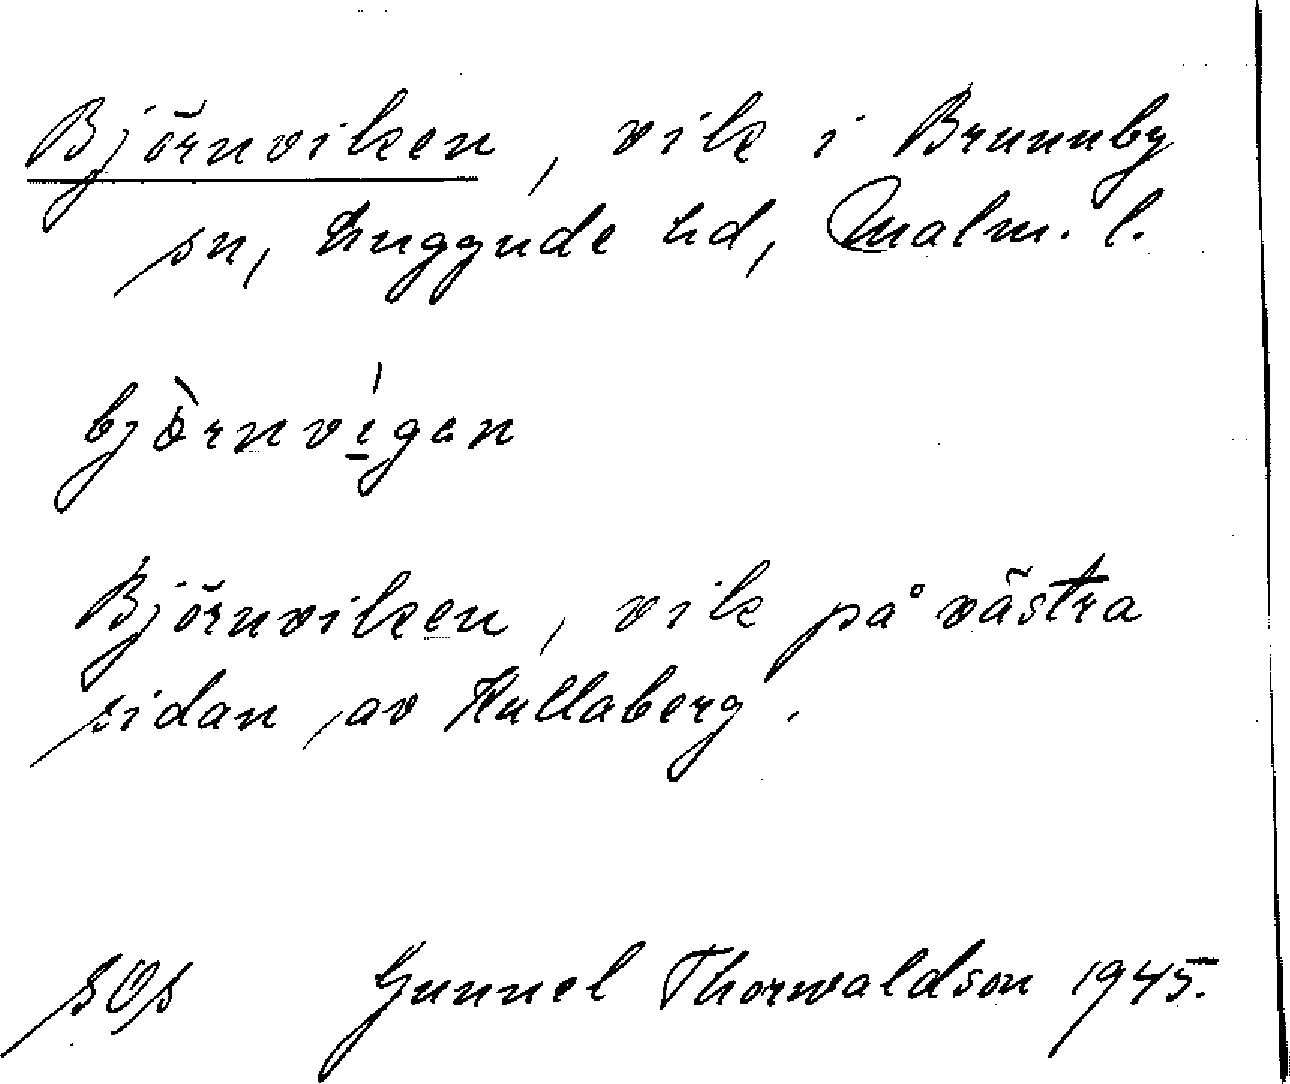 Björnviken, vik i Brunnby
sn, Luggude hd, Malm. l.
bjö̀rnvígen
Björnviken, vik på västra
sidan av Kullaberg.
sÖs Gunnel Thorwaldson 1945.